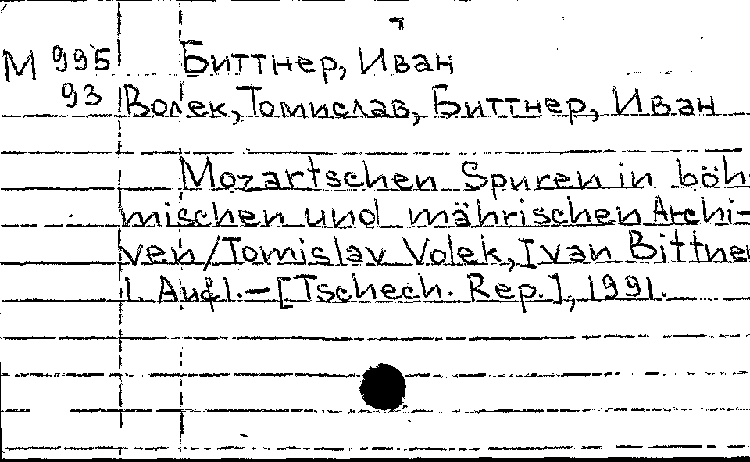 М 995 Биттнер, Иван
93 Волек, Томислав, Биттнер, Иван
Mozartschen Spuren in böh-
mischen und mährischen Archi-
ven/Tomislav Volek, Ivan Bittner
1. Aufl.-[Tschech. Rep.], 1991.